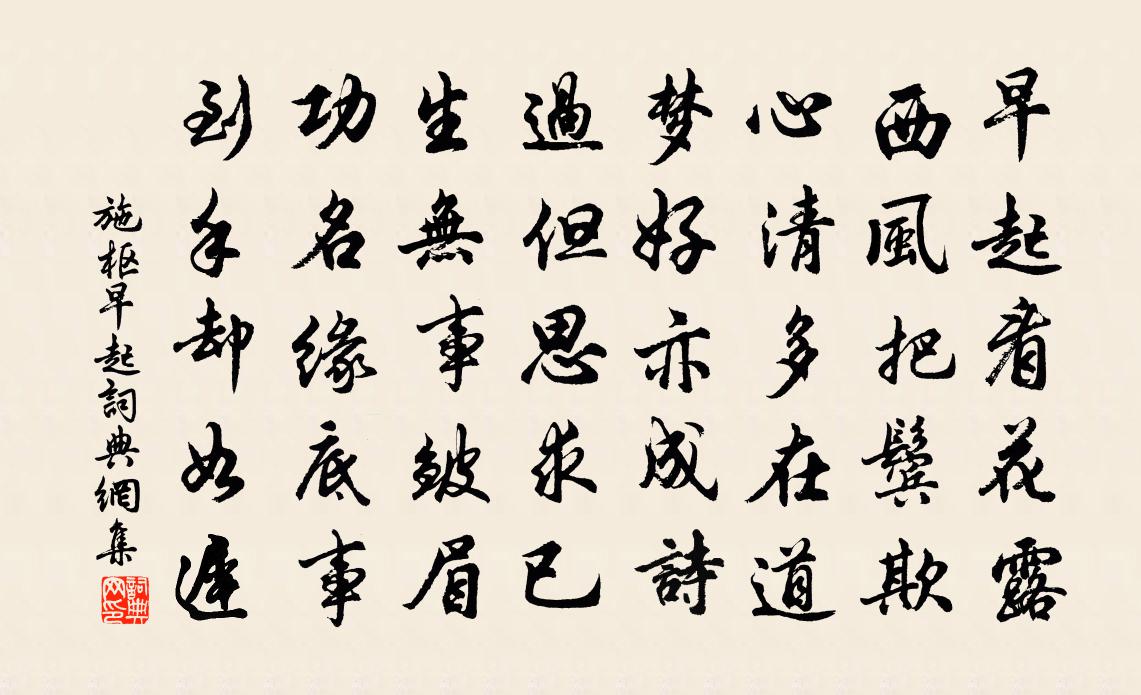 早起看花露
西風把鬢欺
心清多在道
梦好亦成詩
過但思求已
生無事皴眉
功名緣底事
到手却如遲
施枢早起詞典網集
詞典网印